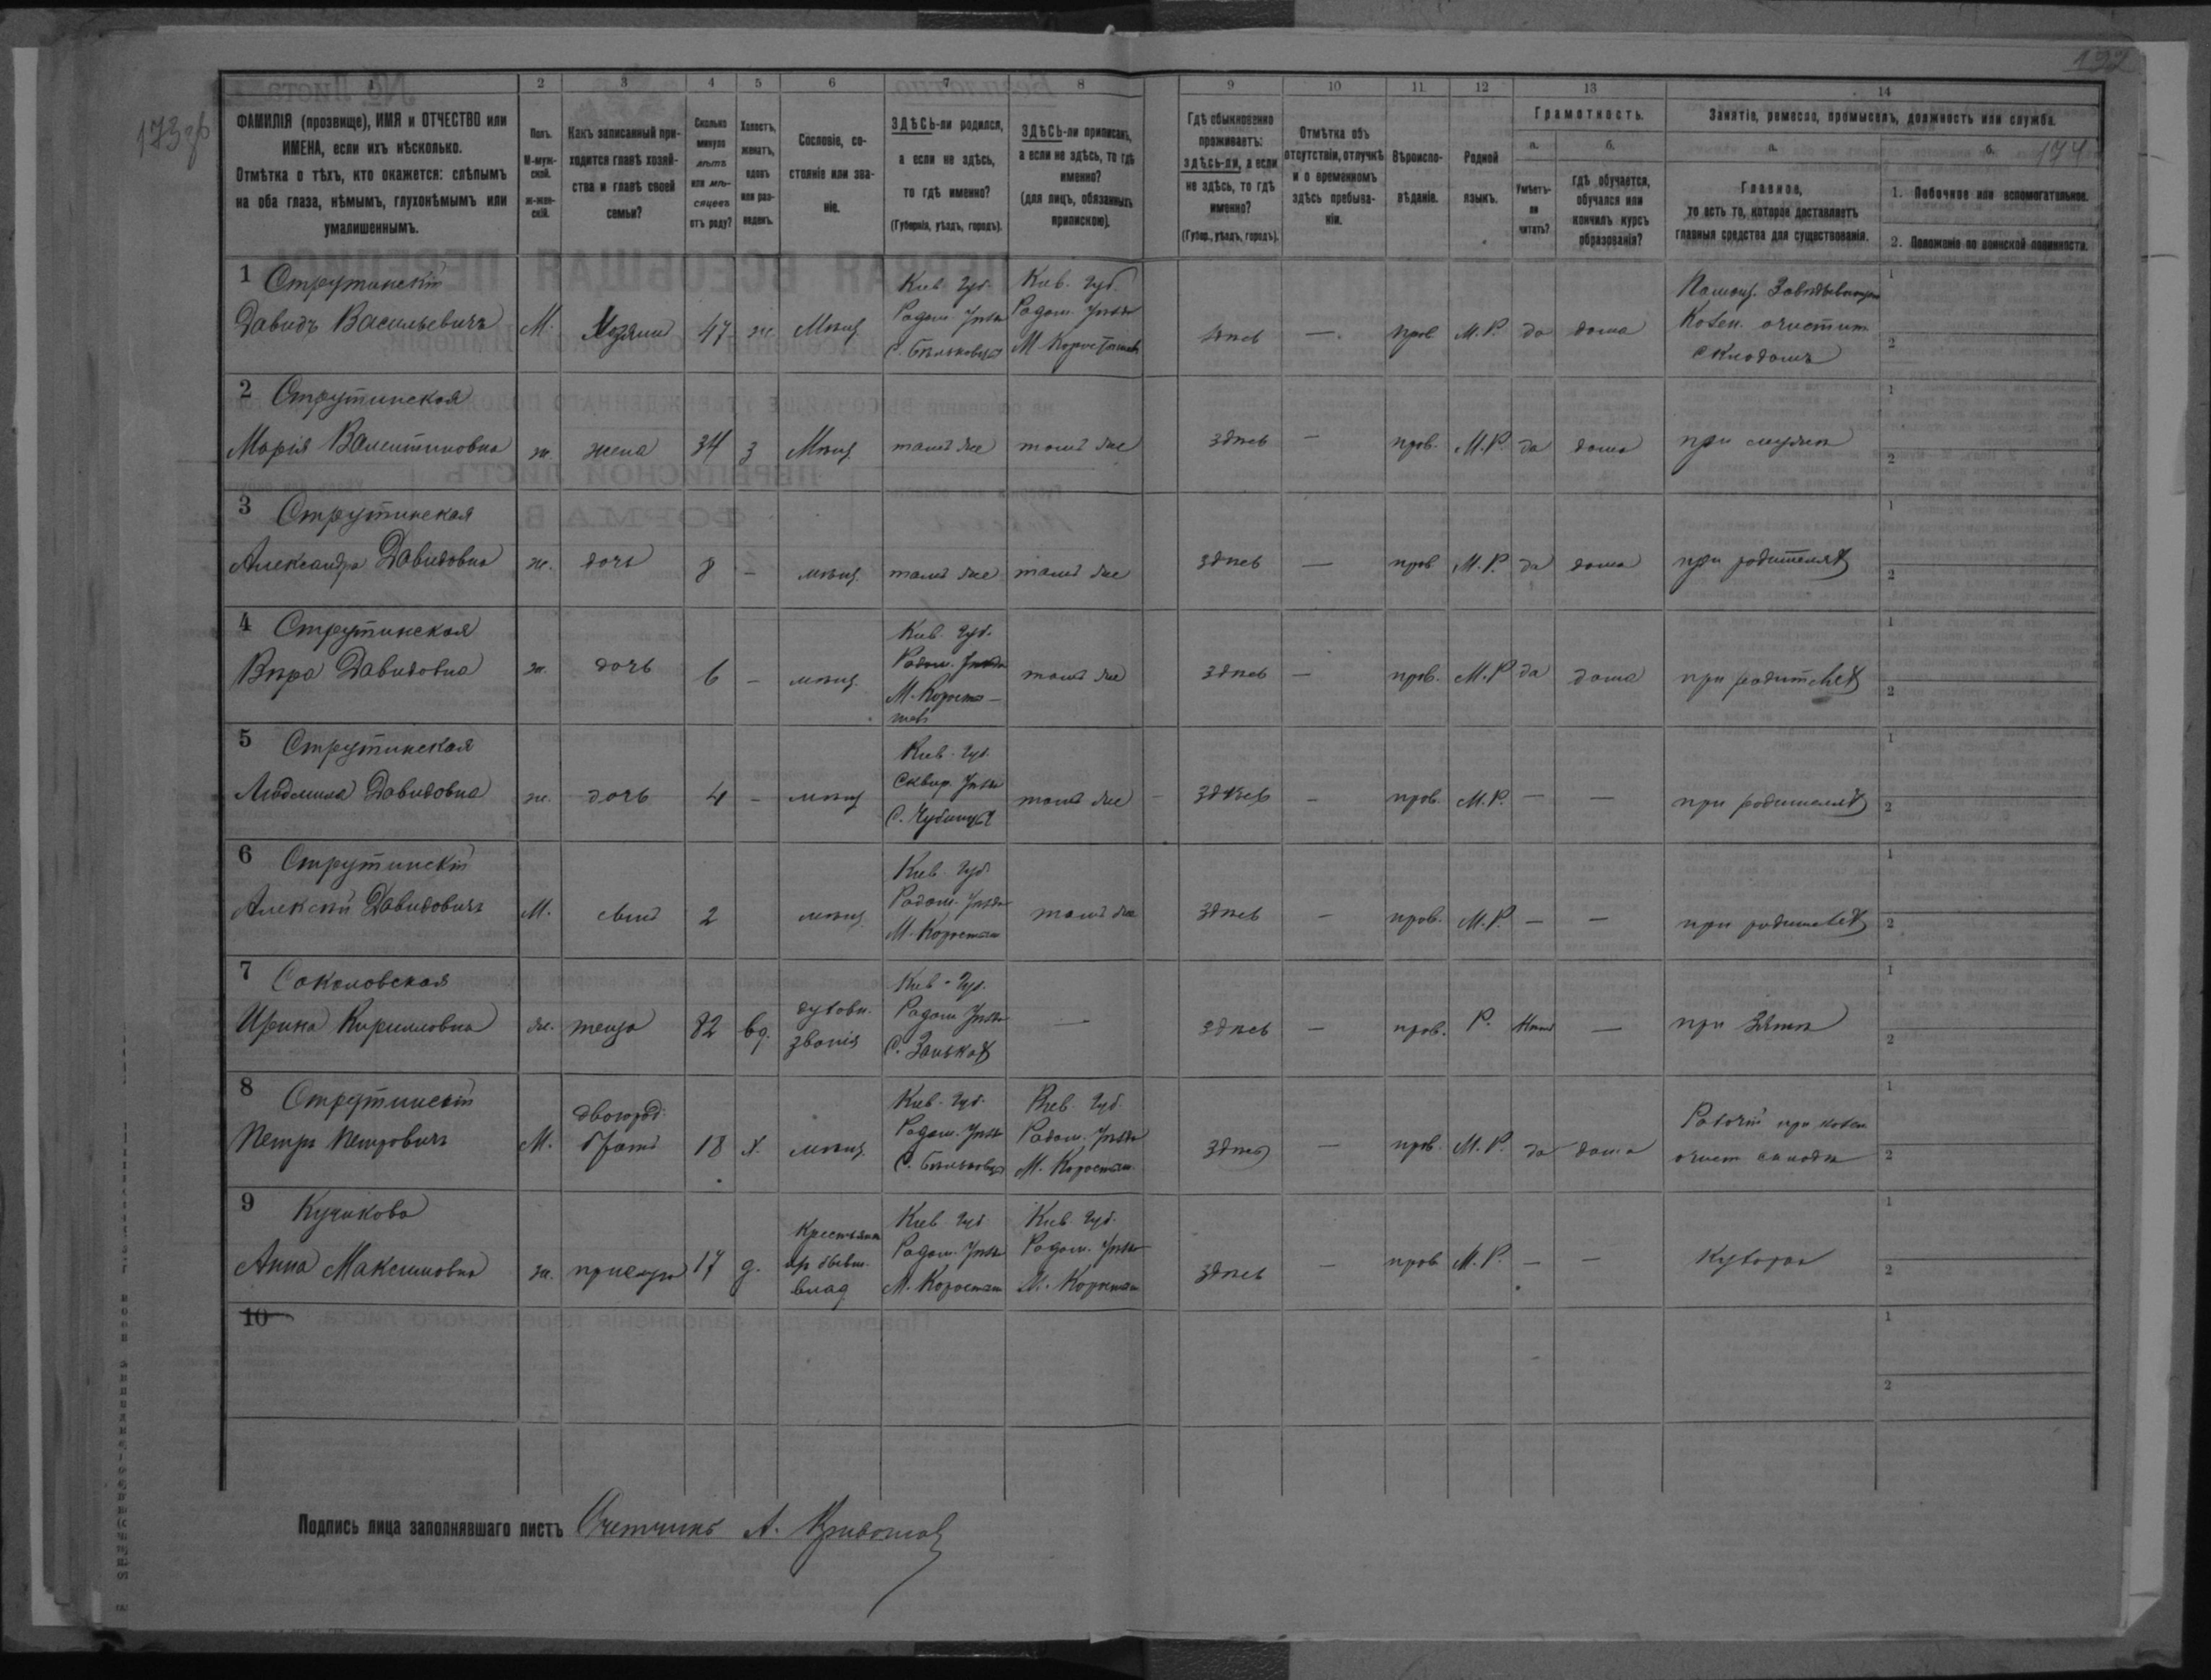 122
173 об
174
1 2 3 4 5 6 7 8 9 10 11 12 13 14
ФАМИЛІЯ (прозвище), ИМЯ и ОТЧЕСТВО или
ИМЕНА, если ихъ нѣсколько.
Отмѣтка о тѣхъ, кто окажется: слѣпымъ
на оба глаза, нѣмымъ, глухонѣмымъ или
умалишеннымъ.
Полъ.
М-муж-
ской.
ж-жен-
скій.
Какъ записанный при-
ходится главѣ хозяй-
ства и главѣ своей
семьи?
Сколько
минуло
лѣтъ
или мѣ-
сяцевъ
отъ роду?
Холостъ,
женатъ,
вдовъ
или раз-
веденъ.
Сословіе, со-
стояніе или зва-
ніе.
ЗДѢСЬ-ли родился,
а если не здѣсь,
то гдѣ именно?
(Губернія, уѣздъ, городъ).
ЗДѢСЬ-ли приписанъ,
а если не здѣсь, то гдѣ
именно?
(для лицъ, обязанныхъ
припискою).
Гдѣ обыкновенно
проживаетъ:
здѣсь-ли, а если
не здѣсь, то гдѣ
именно?
(Губер., уѣздъ, городъ).
Отмѣтка объ
отсутствіи, отлучкѣ
и о временномъ
здѣсь пребыва-
ніи.
Вѣроиспо-
вѣданіе.
Родной
языкъ.
Грамотность.
а.
Умѣетъ-
ли
читать?
б.
гдѣ обучается,
обучался или
кончилъ курсъ
образованія?
Занятіе, ремесло, промыселъ, должность или служба.
а.
Главное,
то есть то, которое доставляетъ
главныя средства для существованія.
б.
1. Побочное или вспомогательное.
2. Положеніе по воинской повинности.
1 Струтинскій
Давидъ Васильевичъ М. Хозяин 47 ж. Мѣщ.
Кіев. Губ.
Радом. Уѣзда
С. Бѣльковцы
Кіев. Губ.
Радом. Уѣзда
М. Коростышевъ
здѣсь — прав. М. Р. да дома
Помощ. Завѣдывающ.
Козен. очистит.
складомъ
1
2
2 Струтинская
Марія Валентиновна ж. жена 34 з Мѣщ. тамъ же тамъ же здѣсь — прав. М. Р. да дома при мужѣ
1
2
3 Струтинская
Александра Давидовна ж. дочь 8 — мѣщ. тамъ же тамъ же здѣсь — прав. М. Р. да дома при родителях
1
2
4 Струтинская
Вѣра Давидовна ж. дочь 6 — мѣщ.
Кіев. Губ.
Радом. Уѣзда
М. Коросты-
шев
тамъ же здѣсь — прав. М. Р. да дома при родителях
1
2
5 Струтинская
Людмила Давидовна ж. дочь 4 — мѣщ
Кіев. Губ.
Сквир. Уѣзда
С. Чубинцы
тамъ же — здѣсь — прав. М. Р. — — при родителях
1
2
6 Струтинскій
Алексѣй Давидовичъ М. сынъ 2 мѣщ.
Кіев. Губ.
Радом. Уѣзда
М. Коростыш
тамъ же здѣсь — прав. М. Р. — — при родителях
1
2
7 Соколовская
Ирина Кирилловна ж. теща 82 вд.
духовн.
званія
Кіев. Губ.
Радом Уѣзда
С. Заньках
— здѣсь — прав. Р. Нѣтъ — при Зятѣ
1
2
8 Струтинскій
Петръ Петровичъ М.
двоюрод.
братъ
18 х. мѣщ.
Кіев. Губ.
Радом. Уѣзда
С. Бѣльковцы
Кіев. Губ.
Радом. Уѣзда
М. Коростыш.
здѣсь — прав. М. Р. да дома
Рабочій при козен
очист складѣ
1
2
9 Кучикова
Анна Максимовна ж. прислуга 17 д.
Крестьянк
бывш.
влад
Кіев. Губ.
Радом. Уѣзда
М. Коростыш
Кіев. Губ.
Радом. Уѣзда
М. Коростыш
здѣсь — прав М. Р. — — Кухарка
1
2
10
1
2
Подпись лица заполнявшаго листъ Счетчикъ А.